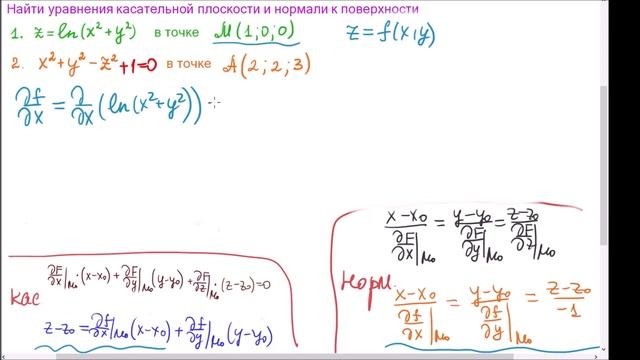 Найти уравнения касательной плоскости и нормали к поверхности
1. z = ln(x² + y²) в точке M(1; 0; 0) z = f(x, y)
2. x² + y² - z² + 1 = 0 в точке A(2; 2; 3)
∂f/∂x = ∂/∂x (ln(x² + y²))
(x - x₀)/(∂F/∂x|M₀) = (y - y₀)/(∂F/∂y|M₀) = (z - z₀)/(∂F/∂z|M₀)
∂F/∂x|M₀ · (x - x₀) + ∂F/∂y|M₀ (y - y₀) + ∂F/∂z|M₀ · (z - z₀) = 0
кас
норм.
(x - x₀)/(∂f/∂x|M₀) = (y - y₀)/(∂f/∂y|M₀) = (z - z₀)/(-1)
z - z₀ = ∂f/∂x|M₀ (x - x₀) + ∂f/∂y|M₀ (y - y₀)